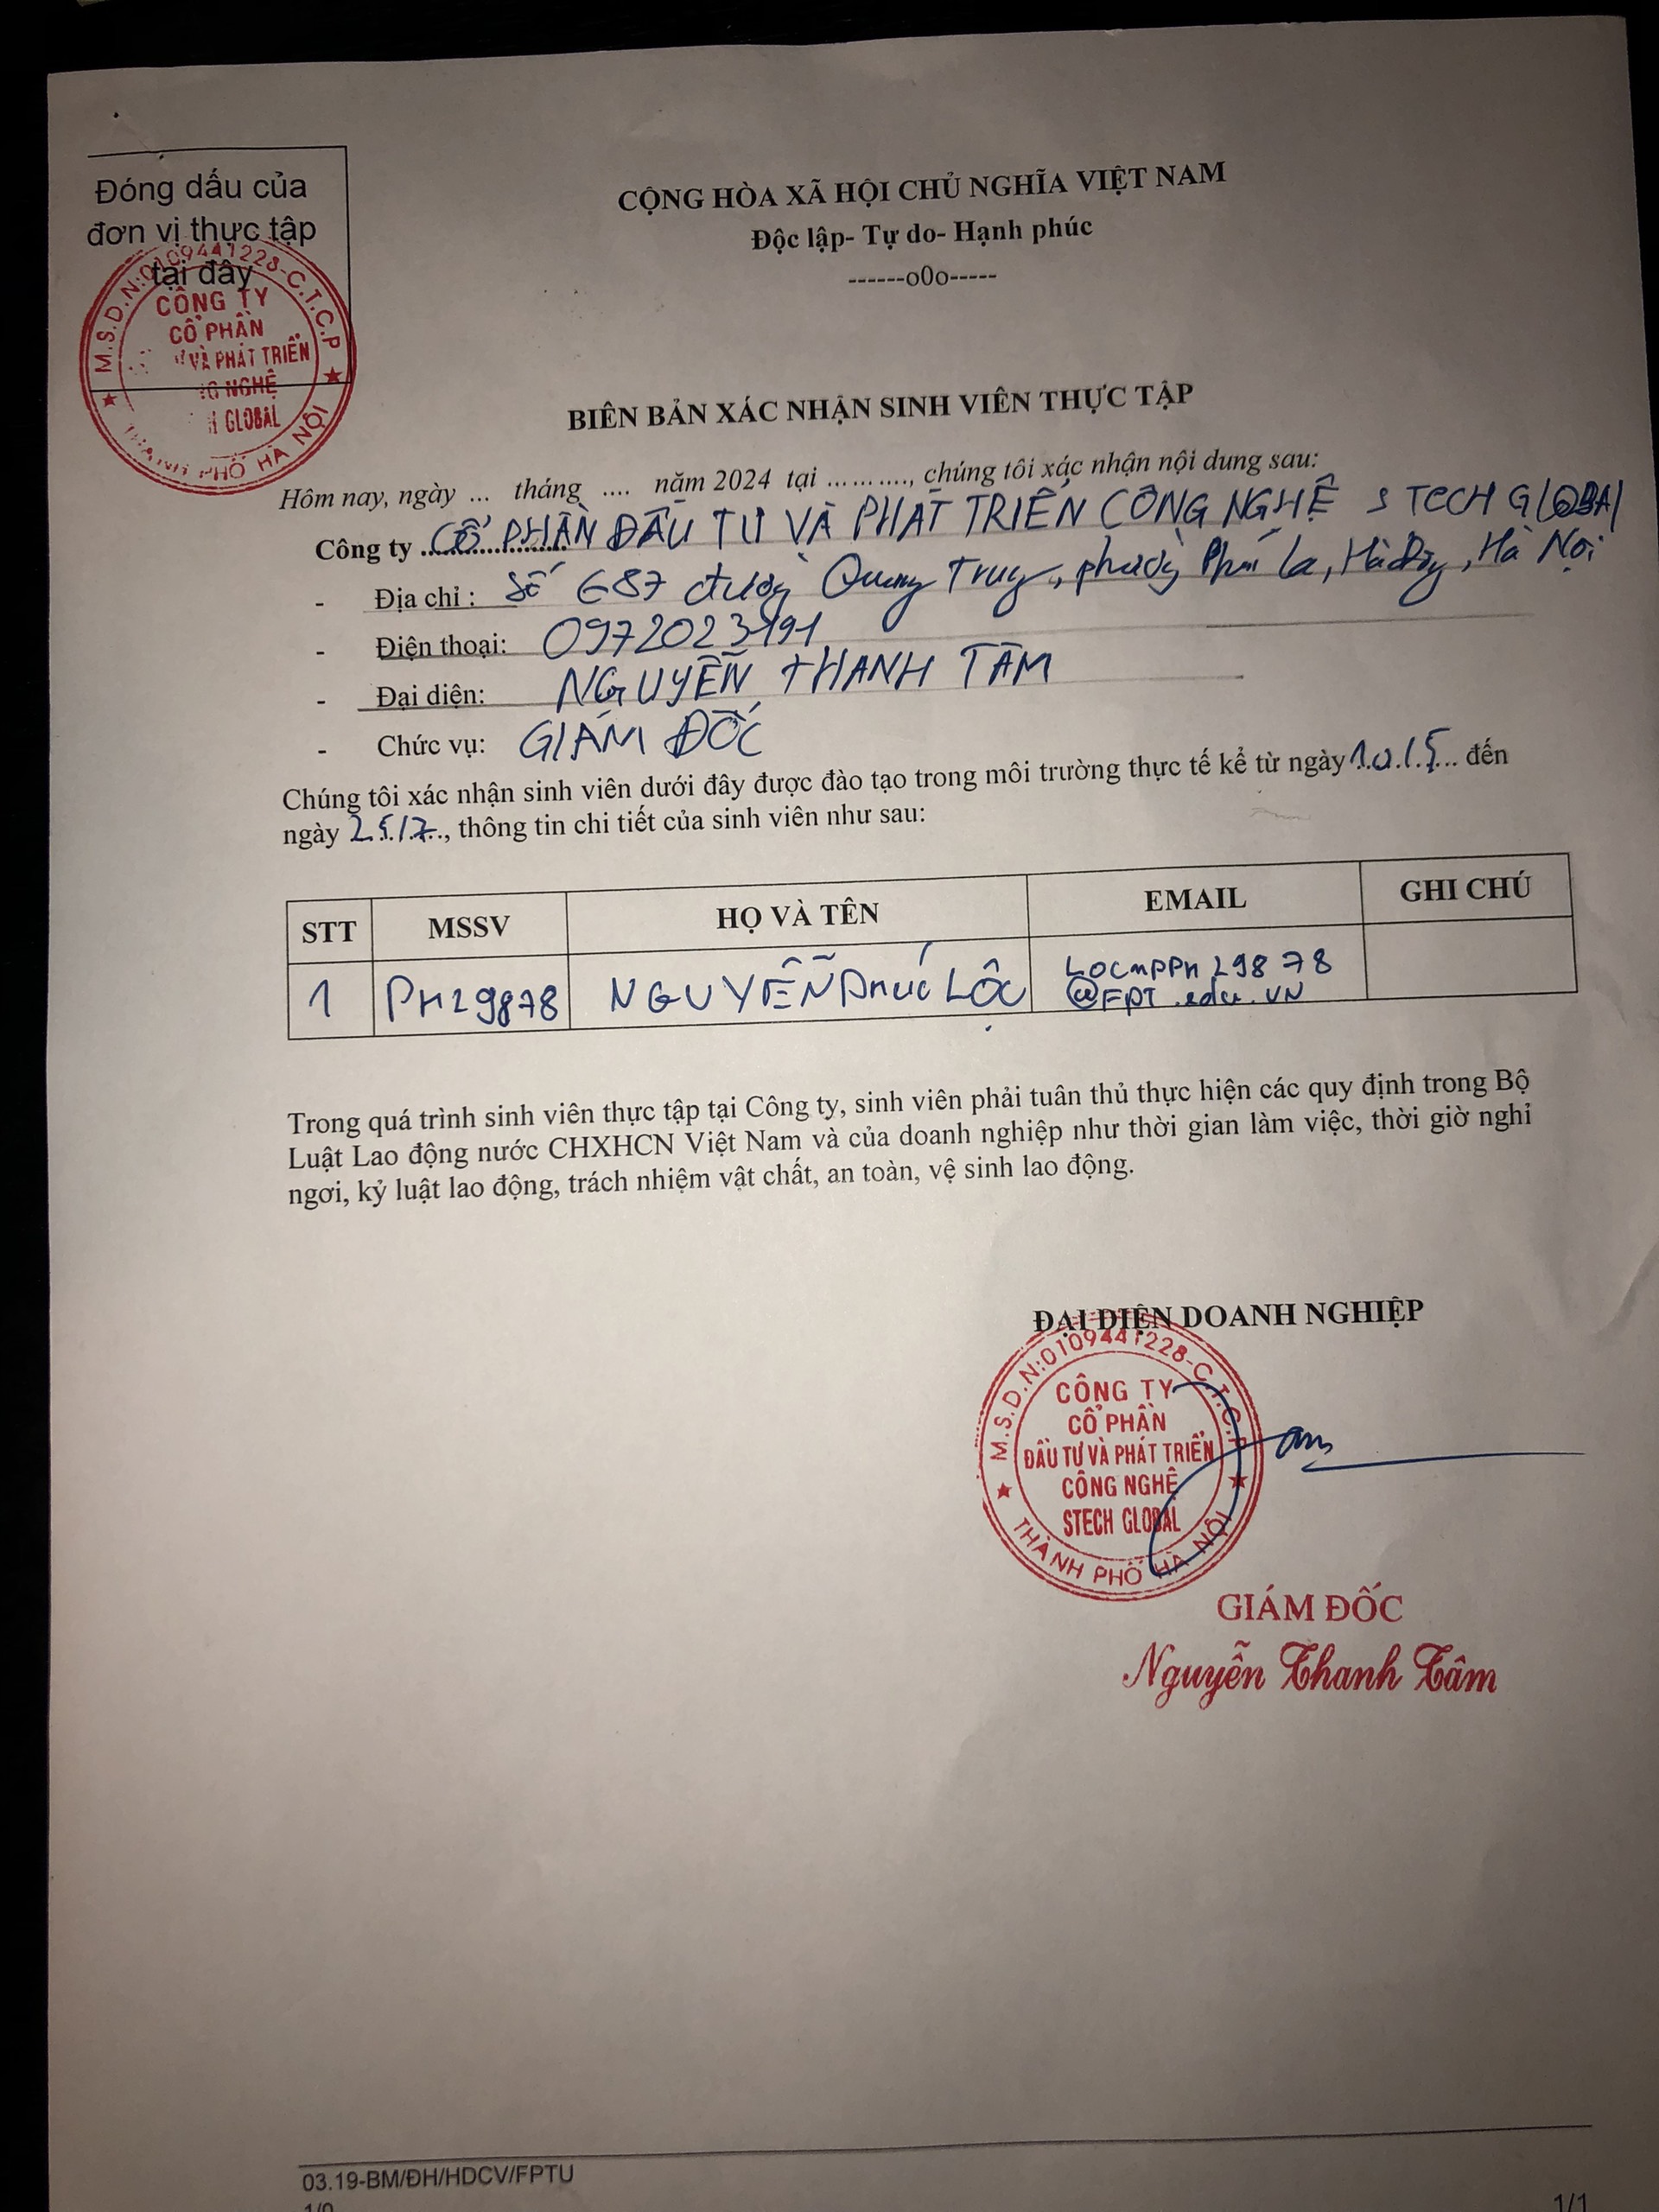 Đóng dấu của
đơn vị thực tập
tại đây
M.S.D.N:0109441228-C.T.C.P
CÔNG TY
CỔ PHẦN
VÀ PHÁT TRIỂN
NGHỆ
GLOBAL
PHỐ HÀ NỘI
CỘNG HÒA XÃ HỘI CHỦ NGHĨA VIỆT NAM
Độc lập- Tự do- Hạnh phúc
------o0o-----
BIÊN BẢN XÁC NHẬN SINH VIÊN THỰC TẬP
Hôm nay, ngày ... tháng .... năm 2024 tại .........., chúng tôi xác nhận nội dung sau:
Công ty CỔ PHẦN ĐẦU TƯ VÀ PHÁT TRIỂN CÔNG NGHỆ S TECH GLOBAL
- Địa chỉ : Số 687 đường Quang Trung, phường Phú La, Hà Đông, Hà Nội
- Điện thoại: 0972023191
- Đại diện: NGUYỄN THANH TÂM
- Chức vụ: GIÁM ĐỐC
Chúng tôi xác nhận sinh viên dưới đây được đào tạo trong môi trường thực tế kể từ ngày 10/5 đến
ngày 25/7, thông tin chi tiết của sinh viên như sau:
STT MSSV HỌ VÀ TÊN EMAIL GHI CHÚ
1 PH29878 NGUYỄN PHÚC LỘC LOCNPPH29878
@FPT.edu.VN
Trong quá trình sinh viên thực tập tại Công ty, sinh viên phải tuân thủ thực hiện các quy định trong Bộ
Luật Lao động nước CHXHCN Việt Nam và của doanh nghiệp như thời gian làm việc, thời giờ nghỉ
ngơi, kỷ luật lao động, trách nhiệm vật chất, an toàn, vệ sinh lao động.
ĐẠI DIỆN DOANH NGHIỆP
M.S.D.N:0109441228-C.T.C.P
CÔNG TY
CỔ PHẦN
ĐẦU TƯ VÀ PHÁT TRIỂN
CÔNG NGHỆ
STECH GLOBAL
THÀNH PHỐ HÀ NỘI
GIÁM ĐỐC
Nguyễn Thanh Tâm
03.19-BM/ĐH/HDCV/FPTU
1/0
1/1